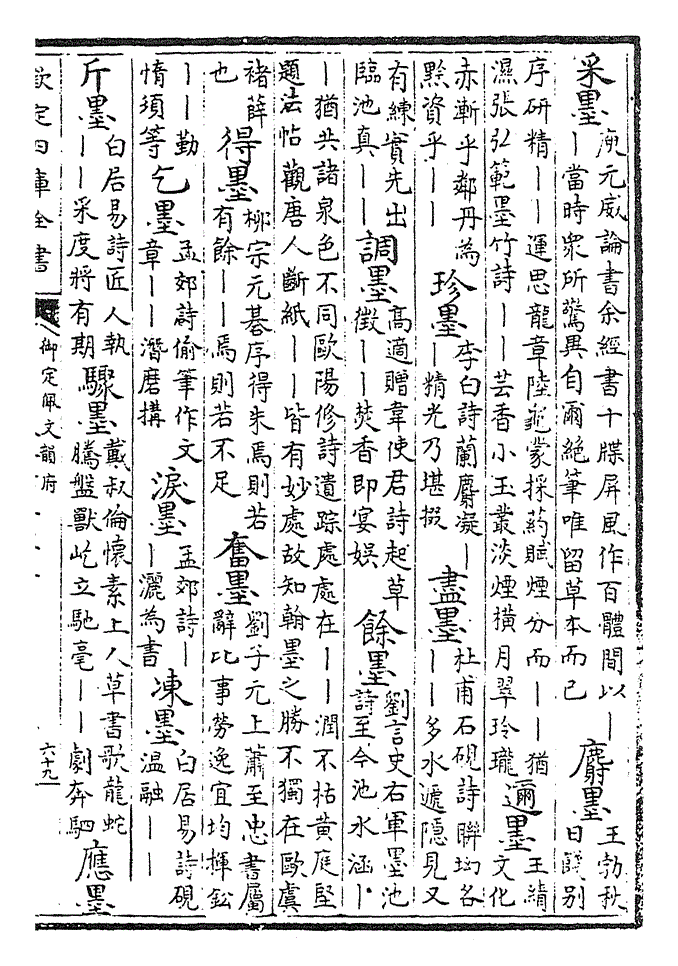 采墨庾元威論書余經書十牒屏風作百體間以｜
｜當時衆所驚異自爾絕筆唯留草本而已麝墨王勃秋
日餞別
序研精｜｜運思龍章陸龜蒙採葯賦煙分而｜｜猶
濕張弘範墨竹詩｜｜芸香小玉叢淡煙橫月翠玲瓏邇墨王績
文化
赤漸乎鄰丹為
黙資乎｜｜珍墨李白詩蘭麝凝｜
｜精光乃堪掇盡墨杜甫石硯詩聯坳各
｜｜多水遞隱見又
有練實先出
臨池真｜｜調墨高適贈韋使君詩起草
徵｜｜焚香即宴娛餘墨劉言史右軍墨池
詩至今池水涵｜
｜猶共諸泉色不同歐陽修詩遺踪處處在｜｜潤不枯黄庭堅
題法帖觀唐人斷紙｜｜皆有妙處故知翰墨之勝不獨在歐虞
褚薛
也得墨柳宗元碁序得朱焉則若
有餘｜｜焉則若不足奮墨劉子元上蕭至忠書屬
辭比事勞逸宜均揮鈆
｜｜勤
惰須等乞墨孟郊詩偷筆作文
章｜｜潛磨搆淚墨孟郊詩｜
｜灑為書凍墨白居易詩硯
温融｜｜
斤墨白居易詩匠人執
｜｜采度將有期驟墨戴叔倫懷素上人草書歌龍蛇
騰盤獸屹立馳毫｜｜劇奔駟應墨
欽定四庫全書
御定佩文韻府
六十九